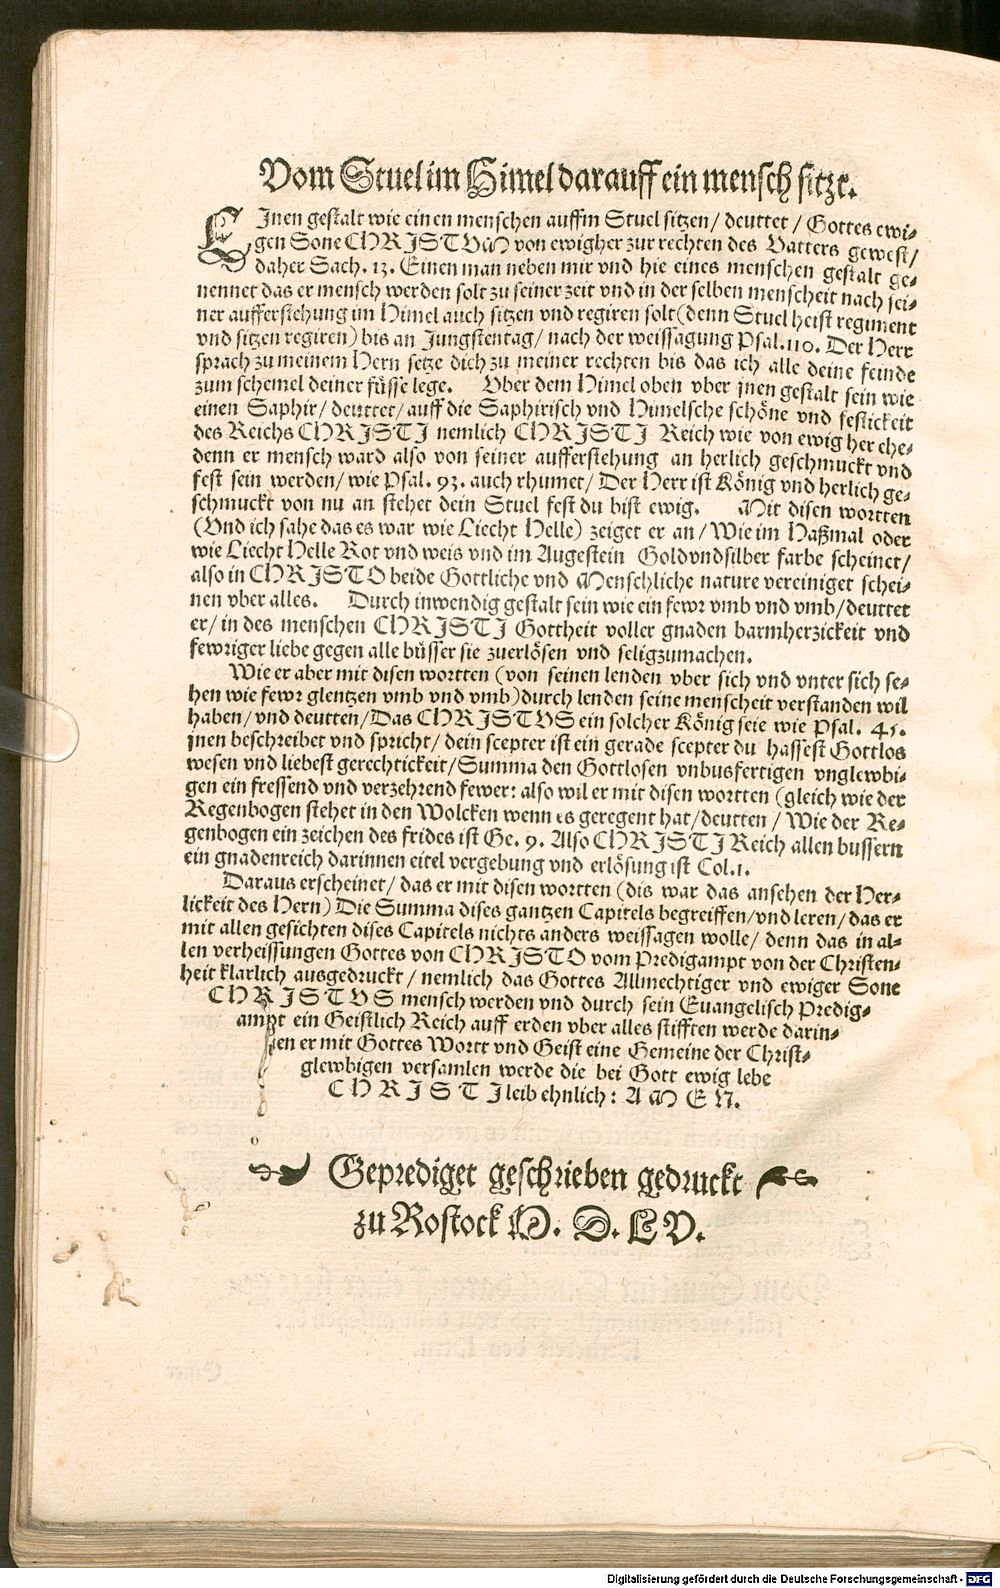 Vom Stuel im Himel darauff ein mensch sitzt.
EInen gestalt wie einen menschen auffm Stuel sitzen/ deuttet / Gottes ewi-
gen Sone CHRISTVM von ewigher zur rechten des Vatters gewest/
daher Sach. 13. Einen man neben mir vnd hie eines menschen gestalt ge-
nennet das er mensch werden solt zu seiner zeit vnd in der selben menscheit nach sei-
ner aufferstehung im Himel auch sitzen vnd regiren solt (denn Stuel heist regiment
vnd sitzen regiren) bis an Jungstentag/ nach der weissagung Psal. 110. Der Herr
sprach zu meinem Hern setze dich zu meiner rechten bis das ich alle deine feinde
zum schemel deiner füsse lege. Vber dem Himel oben vber jnen gestalt sein wie
einen Saphir/ deuttet/ auff die Saphirisch vnd Himelsche schöne vnd festickeit
des Reichs CHRISTI nemlich CHRISTI Reich wie von ewig her ehe-
denn er mensch ward also von seiner aufferstehung an herlich geschmuckt vnd
fest sein werden/ wie Psal. 93. auch rhumet/ Der Herr ist König vnd herlich ge-
schmuckt von nu an stehet dein Stuel fest du bist ewig. Mit disen wortten
(Vnd ich sahe das es war wie Liecht Helle) zeiget er an/ Wie im Haßmal oder
wie Liecht Helle Rot vnd weis vnd im Augestein Gold vnd silber farbe scheinet/
also in CHRISTO beide Gottliche vnd Menschliche nature vereiniget schei-
nen vber alles. Durch inwendig gestalt sein wie ein fewr vmb vnd vmb/ deuttet
er/ in des menschen CHRISTI Gottheit voller gnaden barmherzickeit vnd
fewriger liebe gegen alle büsser sie zuerlösen vnd seligzumachen.
Wie er aber mit disen wortten (von seinen lenden vber sich vnd vnter sich se-
hen wie fewr glentzen vmb vnd vmb) durch lenden seine menscheit verstanden wil
haben/ vnd deutten/ Das CHRISTVS ein solcher König seie wie Psal. 45.
jnen beschreibet vnd spricht/ dein scepter ist ein gerade scepter du hassest Gottlos
wesen vnd liebest gerechtickeit/ Summa den Gottlosen vnbusfertigen vnglewbi-
gen ein fressend vnd verzehrend fewer: also wil er mit disen wortten (gleich wie der
Regenbogen stehet in den Wolcken wenn es geregent hat/ deutten / Wie der Re-
genbogen ein zeichen des frides ist Ge. 9. Also CHRISTI Reich allen bussern
ein gnadenreich darinnen eitel vergebung vnd erlösung ist Col. 1.
Daraus erscheinet/ das er mit disen wortten (dis war das ansehen der Her-
lickeit des Hern) Die Summa dises gantzen Capitels begreiffen/ vnd leren/ das er
mit allen gesichten dises Capitels nichts anders weissagen wolle/ denn das in al-
len verheissungen Gottes von CHRISTO vom Predigampt von der Christen-
heit klarlich ausgedruckt/ nemlich das Gottes Allmechtiger vnd ewiger Sone
CHRISTVS mensch werden vnd durch sein Euangelisch Predig-
ampt ein Geistlich Reich auff erden vber alles stifften werde darin-
nen er mit Gottes Wortt vnd Geist eine Gemeine der Christ-
glewbigen versamlen werde die bei Gott ewig lebe
CHRISTI leib ehnlich: AMEN.
Geprediget geschrieben gedruckt
zu Rostock M. D. LV.
Digitalisierung gefördert durch die Deutsche Forschungsgemeinschaft - DFG